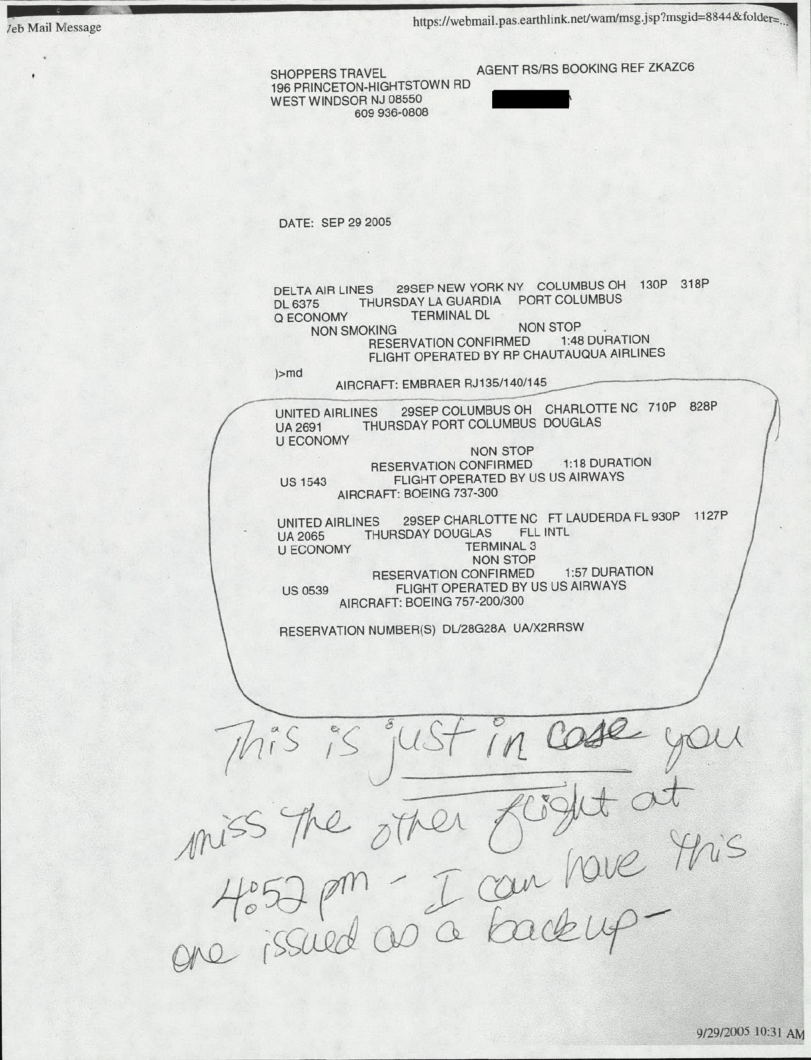 7eb Mail Message
https://webmail.pas.earthlink.net/wam/msg.jsp?msgid=8844&folder=...
SHOPPERS TRAVEL AGENT RS/RS BOOKING REF ZKAZC6
196 PRINCETON-HIGHTSTOWN RD
WEST WINDSOR NJ 08550
609 936-0808
DATE: SEP 29 2005
DELTA AIR LINES 29SEP NEW YORK NY COLUMBUS OH 130P 318P
DL 6375 THURSDAY LA GUARDIA PORT COLUMBUS
Q ECONOMY TERMINAL DL
NON SMOKING NON STOP
RESERVATION CONFIRMED 1:48 DURATION
FLIGHT OPERATED BY RP CHAUTAUQUA AIRLINES
)>md
AIRCRAFT: EMBRAER RJ135/140/145
UNITED AIRLINES 29SEP COLUMBUS OH CHARLOTTE NC 710P 828P
UA 2691 THURSDAY PORT COLUMBUS DOUGLAS
U ECONOMY
NON STOP
RESERVATION CONFIRMED 1:18 DURATION
US 1543 FLIGHT OPERATED BY US US AIRWAYS
AIRCRAFT: BOEING 737-300
UNITED AIRLINES 29SEP CHARLOTTE NC FT LAUDERDA FL 930P 1127P
UA 2065 THURSDAY DOUGLAS FLL INTL
U ECONOMY TERMINAL 3
NON STOP
RESERVATION CONFIRMED 1:57 DURATION
US 0539 FLIGHT OPERATED BY US US AIRWAYS
AIRCRAFT: BOEING 757-200/300
RESERVATION NUMBER(S) DL/28G28A UA/X2RRSW
This is just in case you
miss the other flight at
4:52 pm - I can have this
one issued as a backup-
9/29/2005 10:31 AM